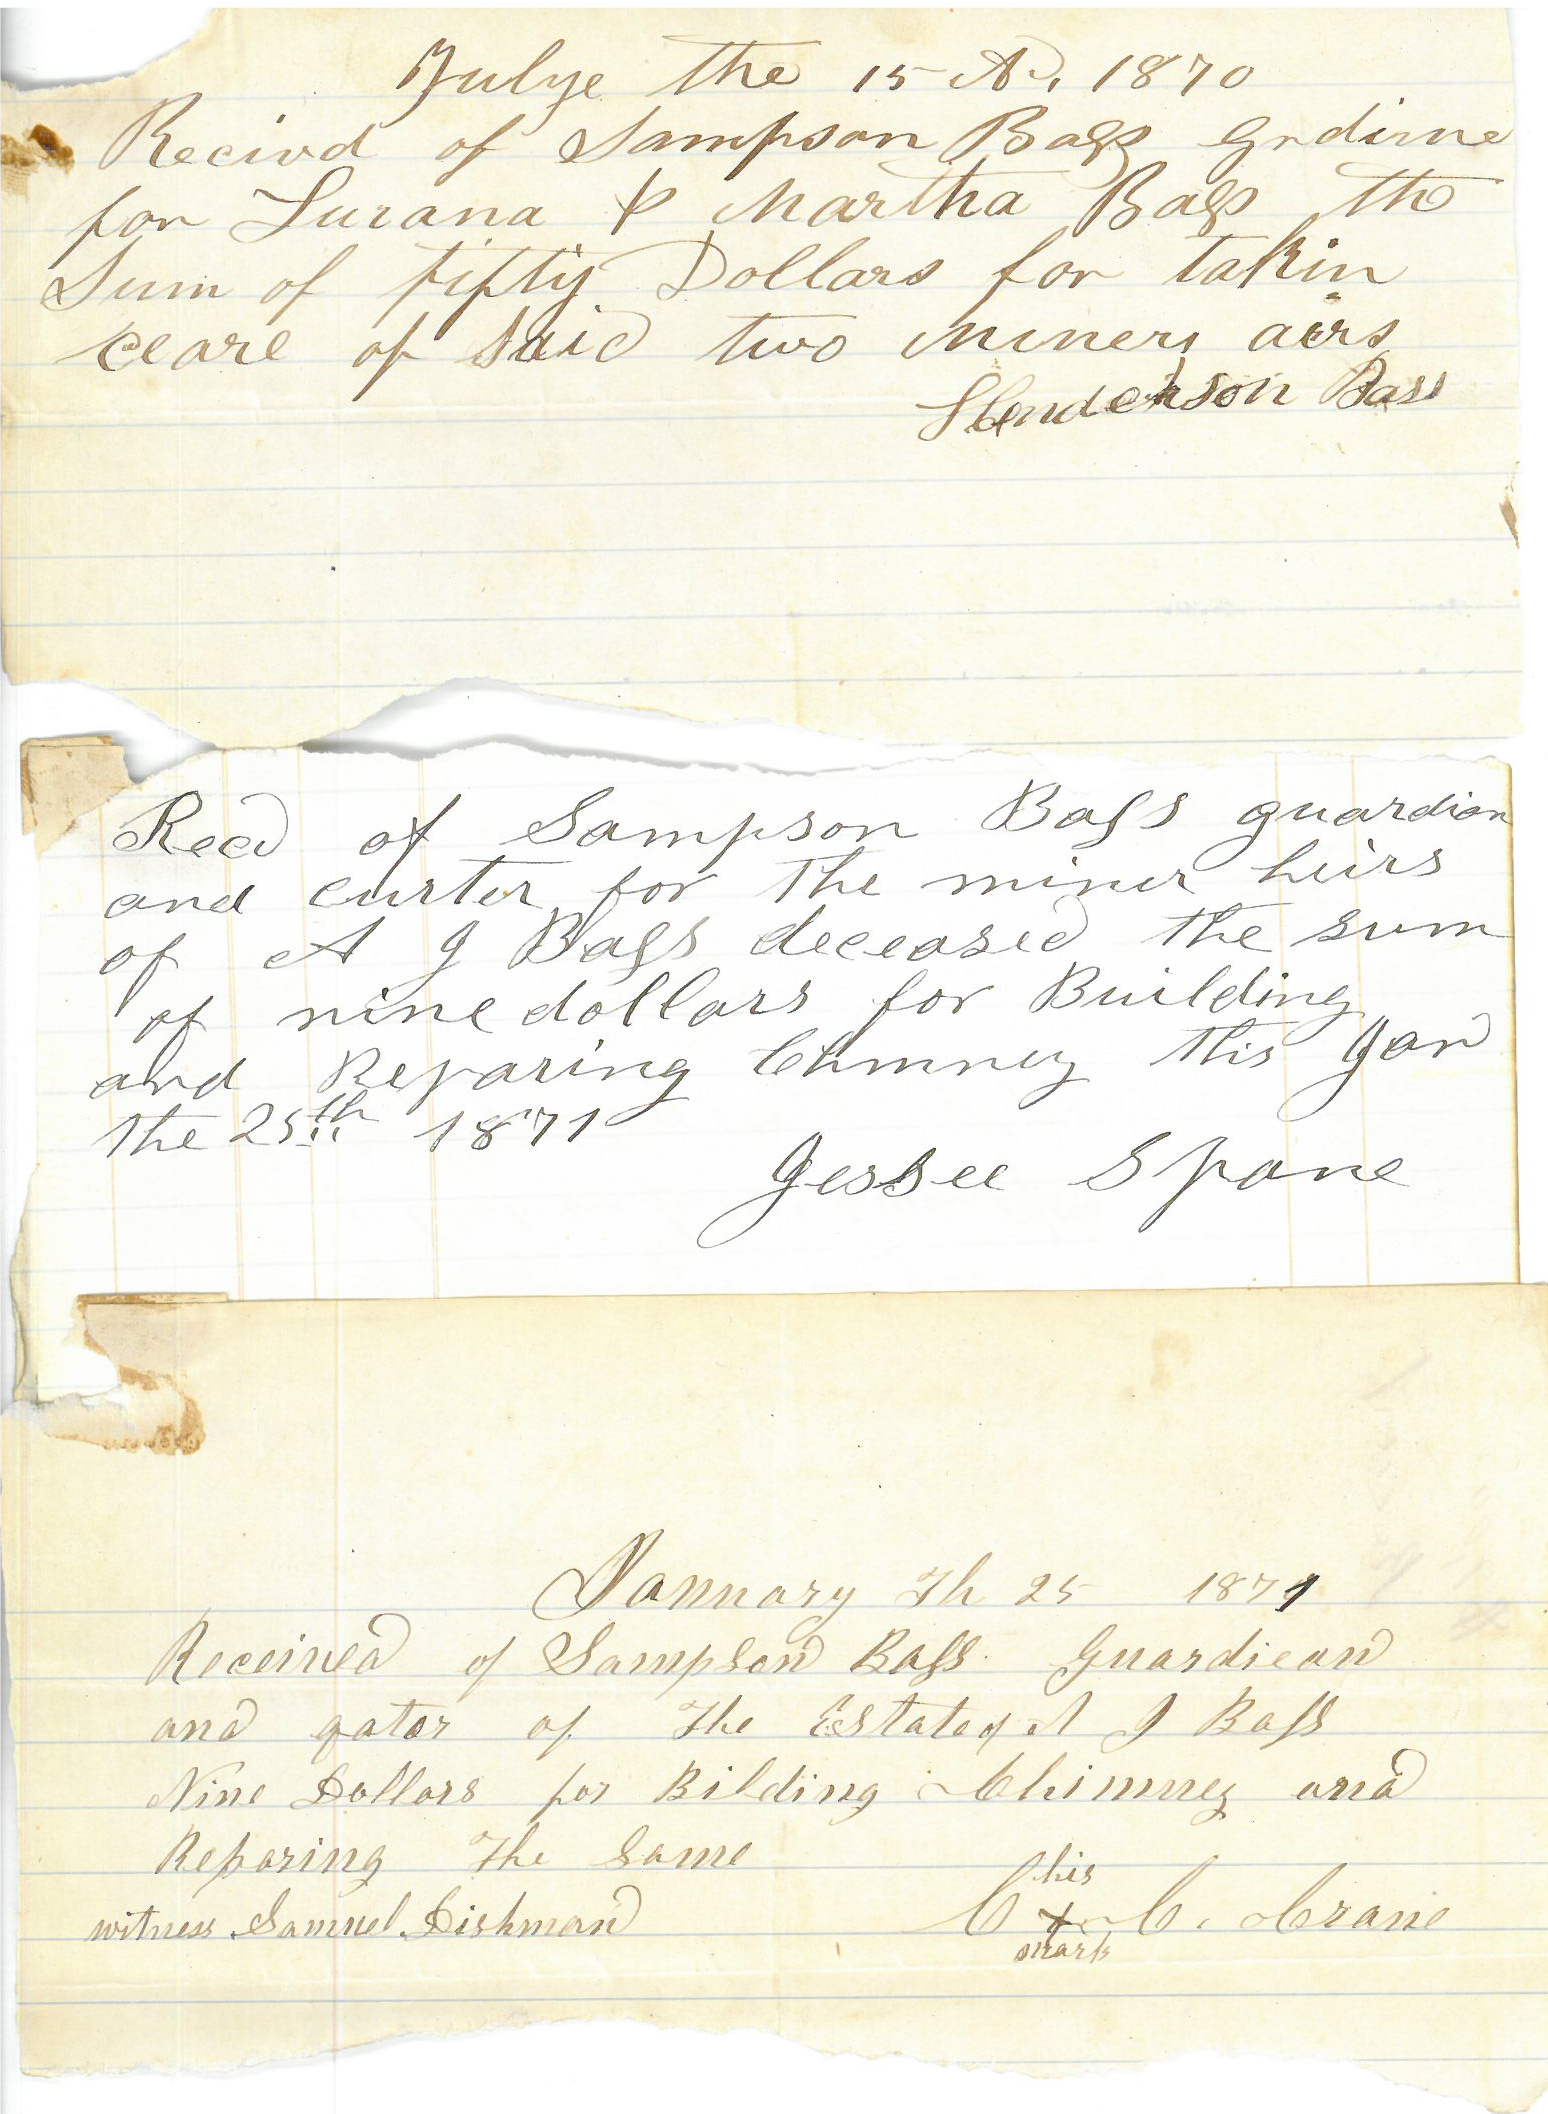 Julye the 15 AD, 1870
Recivd of Sampson Bass Grdinne
for Lurana & Martha Bass the
Sum of fifty Dollars for takin
ceare of Said two miners airs
Henderson Bass
Recd of Sampson Bass guardian
and curter for the miner heirs
of A J Bass deceased the sum
of nine dollars for Building
and Reparing Chmney this Jan
the 25th 1871
Jessee Spane
January Th 25 1871
Received of Sampson Bass Guardiean
and qator of The Estate of A J Bass
Nine Dollars for Bilding Chimney and
Reparing The Same
his
witness Samuel Dishman C + C. Crane
mark